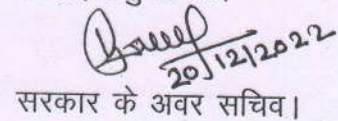 20/12/2022
सरकार के अवर सचिव।